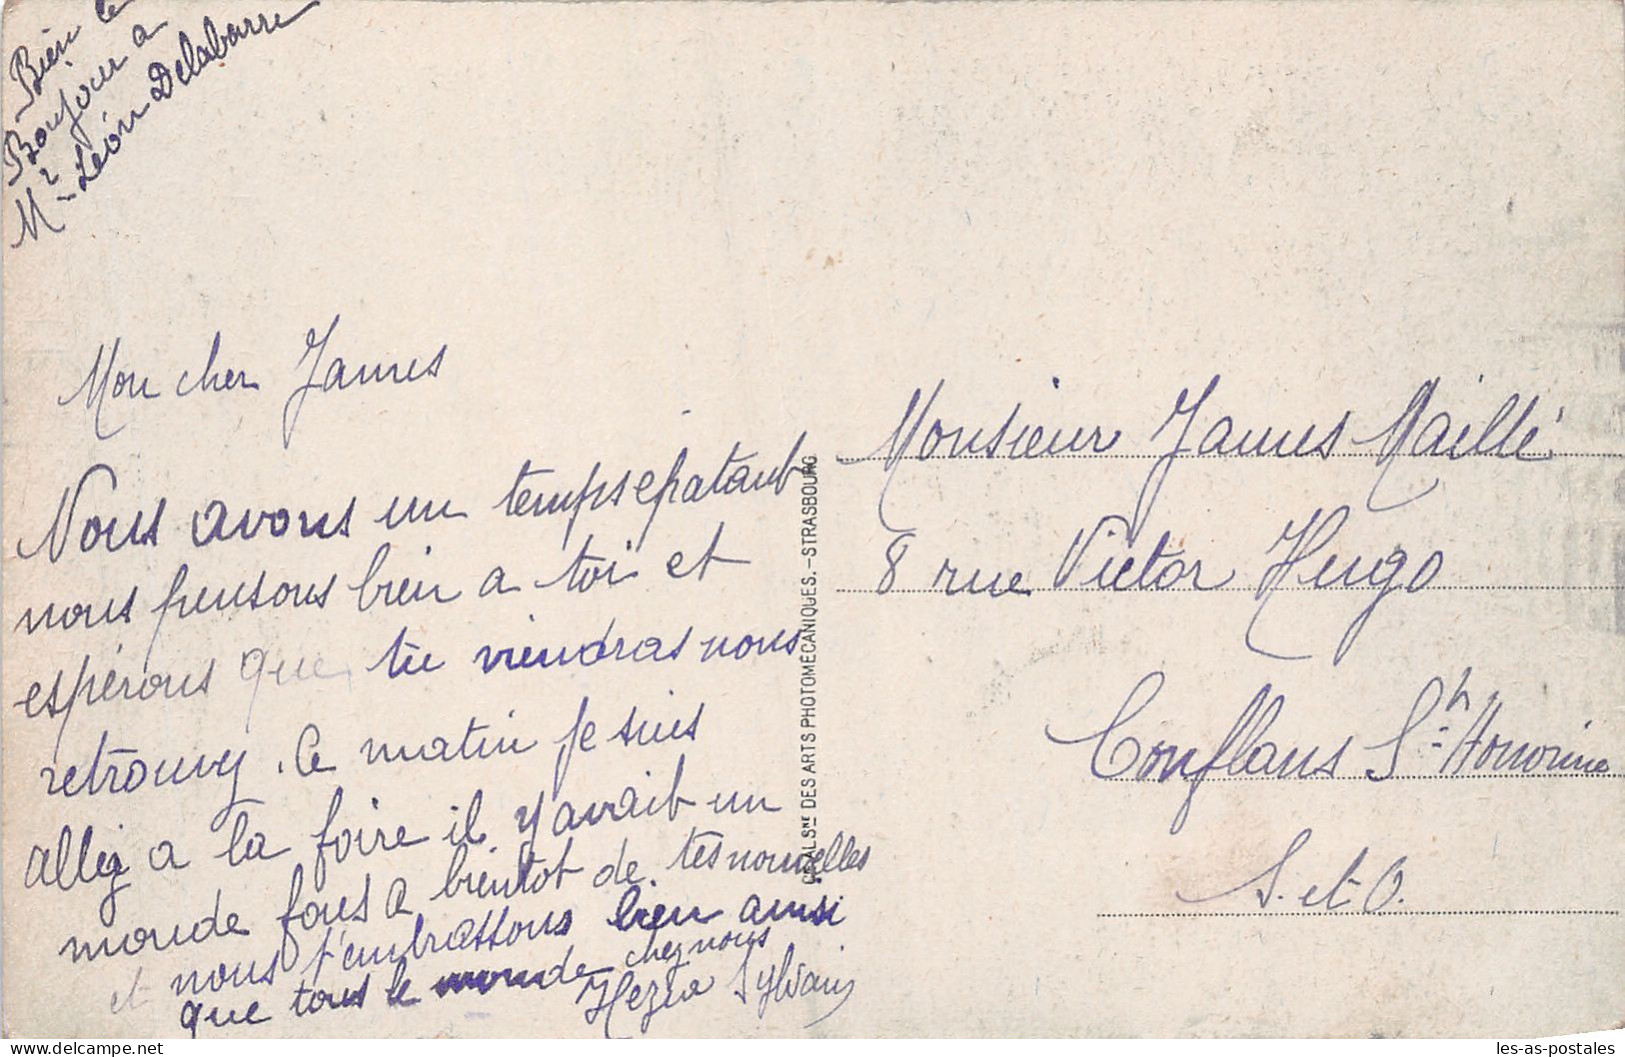 Bien le
Bonjour a
Mr Léon Delabarre
Mon cher James
Nous avons un temps epatant
nous pensons bien a toi et
espérons que tu viendras nous
retrouvez. Ce matin je suis
allez a la foire il y avait un
monde fous a bientot de tes nouvelles
et nous t'embrassons bien ainsi
que tous le monde chez nous
Sylvain
DES ARTS PHOTOMECANIQUES.-STRASBOURG
Monsieur James Maillé
8 rue Victor Hugo
Conflans Sh Honorine
S. et O.
les-as-postales